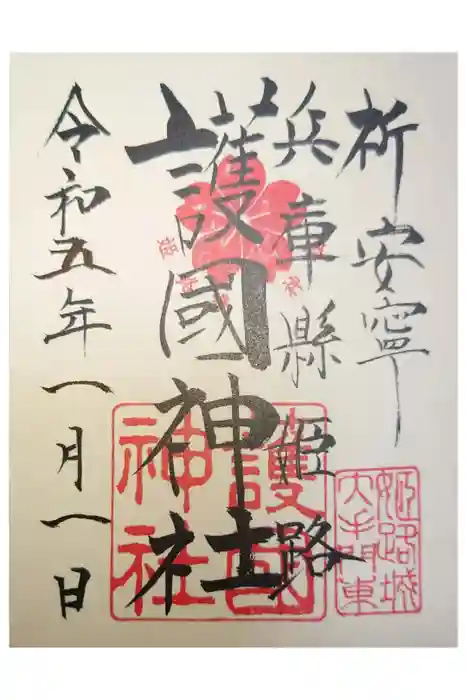 祈安寧
兵庫縣姫路
護國神社
令和五年一月一日
護國
神社
姫路城
大手門東